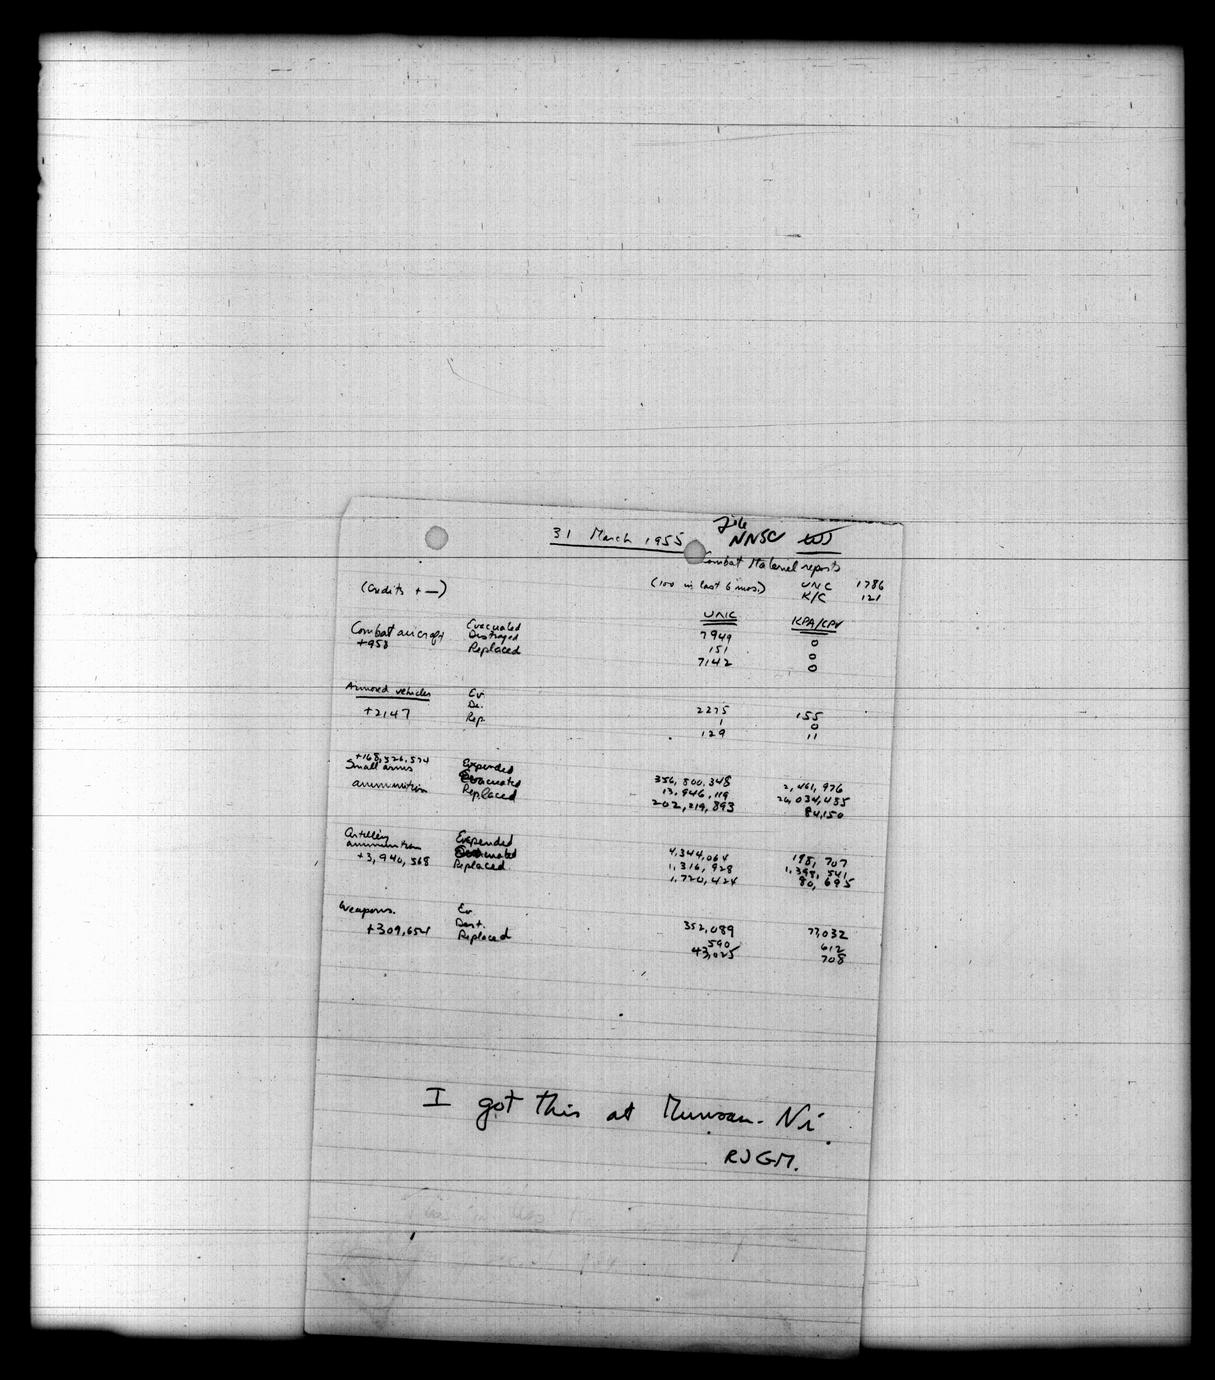 File
31 March 1955 NNSC
Combat Material reports
(Credits + —) (100 in last 6 mos.) UNC 1786
K/C 121
UNC KPA/CPV
Combat aircraft Evacuated 7949 0
+958 Destroyed 151 0
Replaced 7142 0
Armored vehicles Ev. 2275 155
De. 1 0
+2147 Rep. 129 11
+168,326,574
Small arms Expended 356,500,348 2,461,976
ammunition Evacuated 13,946,119 26,034,455
Replaced 202,219,893 84,150
Artillery Expended 4,344,064 198,707
ammunition Evacuated 1,316,928 1,398,541
+3,940,568 Replaced 1,720,424 80,695
Weapons. Ev. 352,089 77,032
Dest. 590 612
+309,654 Replaced 43,025 708
I got this at Munsan-Ni.
RJGM.